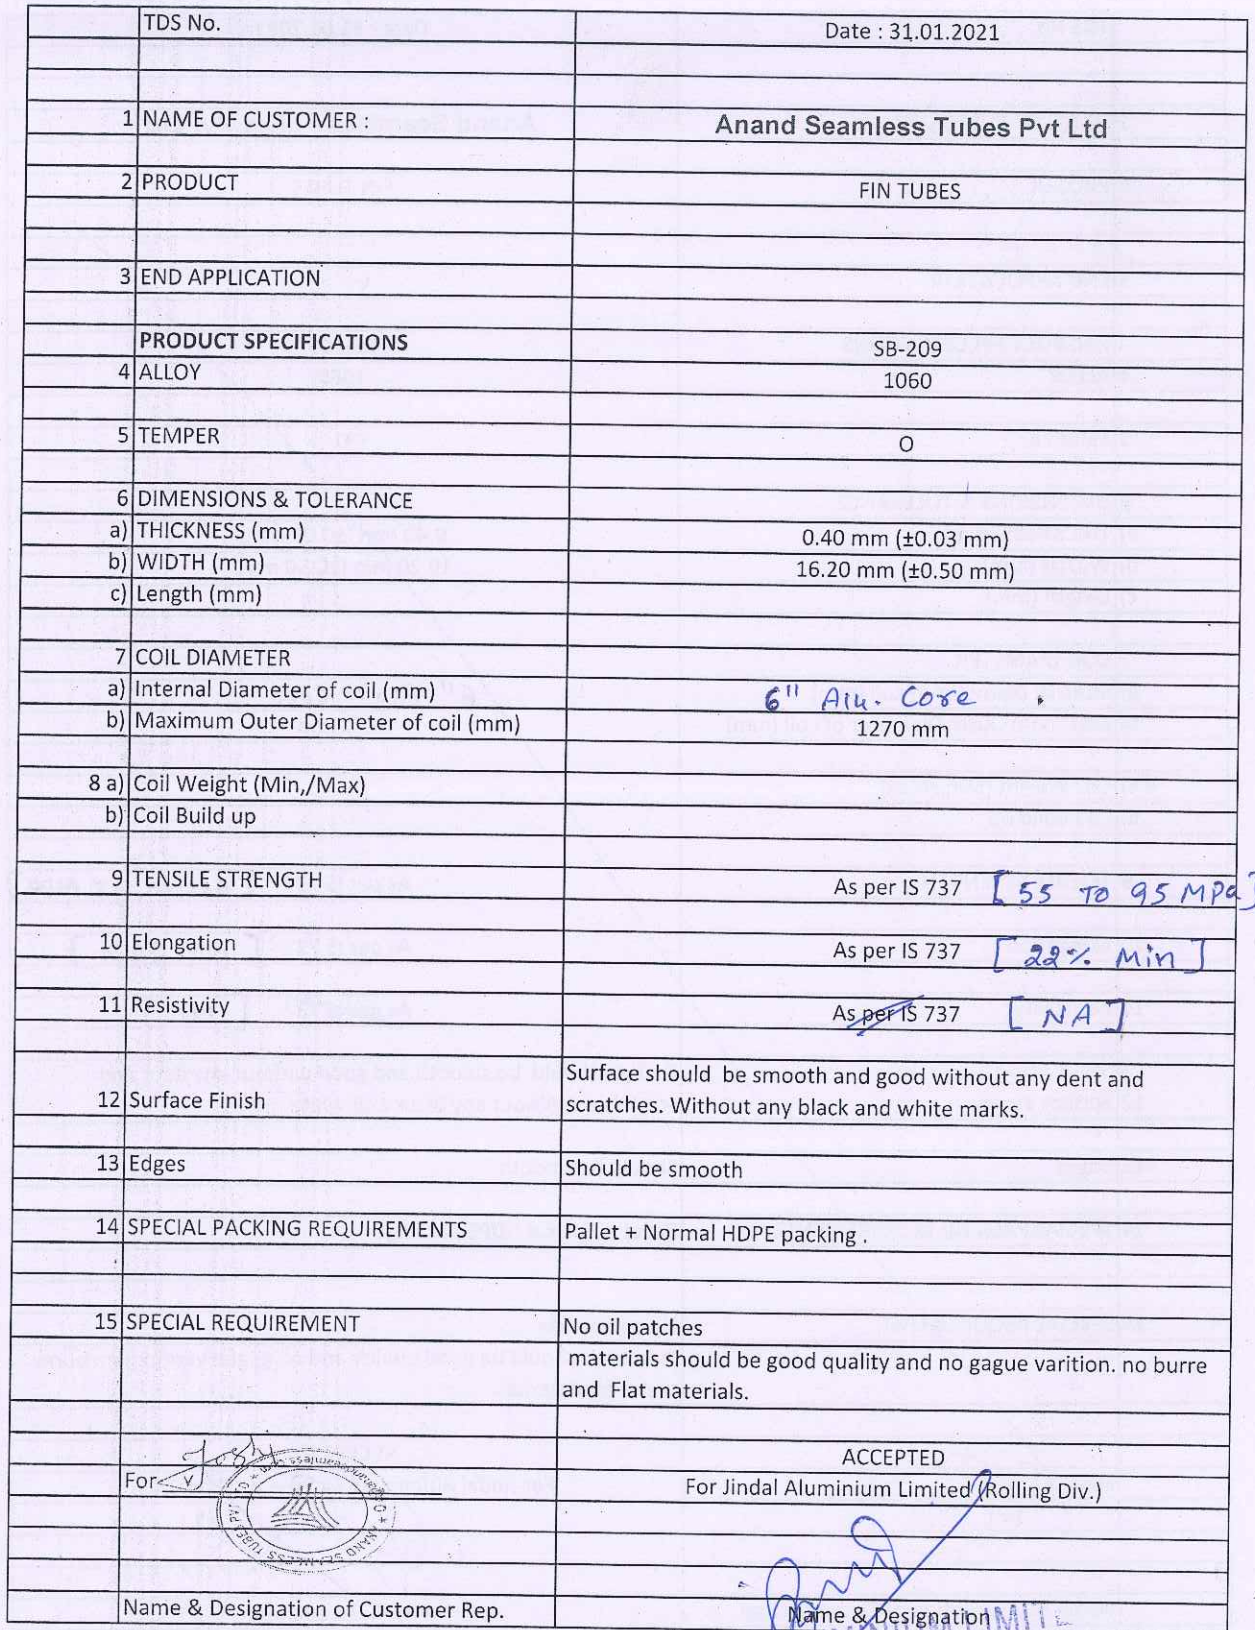 TDS No. Date : 31.01.2021
1 NAME OF CUSTOMER : Anand Seamless Tubes Pvt Ltd
2 PRODUCT FIN TUBES
3 END APPLICATION
PRODUCT SPECIFICATIONS SB-209
4 ALLOY 1060
5 TEMPER O
6 DIMENSIONS & TOLERANCE
a) THICKNESS (mm) 0.40 mm (±0.03 mm)
b) WIDTH (mm) 16.20 mm (±0.50 mm)
c) Length (mm)
7 COIL DIAMETER
a) Internal Diameter of coil (mm) 6" Alu. Core
b) Maximum Outer Diameter of coil (mm) 1270 mm
8 a) Coil Weight (Min,/Max)
b) Coil Build up
9 TENSILE STRENGTH As per IS 737 [55 TO 95 MPa]
10 Elongation As per IS 737 [22% Min]
11 Resistivity As per IS 737 [NA]
Surface should be smooth and good without any dent and
12 Surface Finish scratches. Without any black and white marks.
13 Edges Should be smooth
14 SPECIAL PACKING REQUIREMENTS Pallet + Normal HDPE packing .
15 SPECIAL REQUIREMENT No oil patches
materials should be good quality and no gague varition. no burre
and Flat materials.
ACCEPTED
For For Jindal Aluminium Limited (Rolling Div.)
ANAND SEAMLESS TUBES PVT
Name & Designation of Customer Rep. Name & Designation